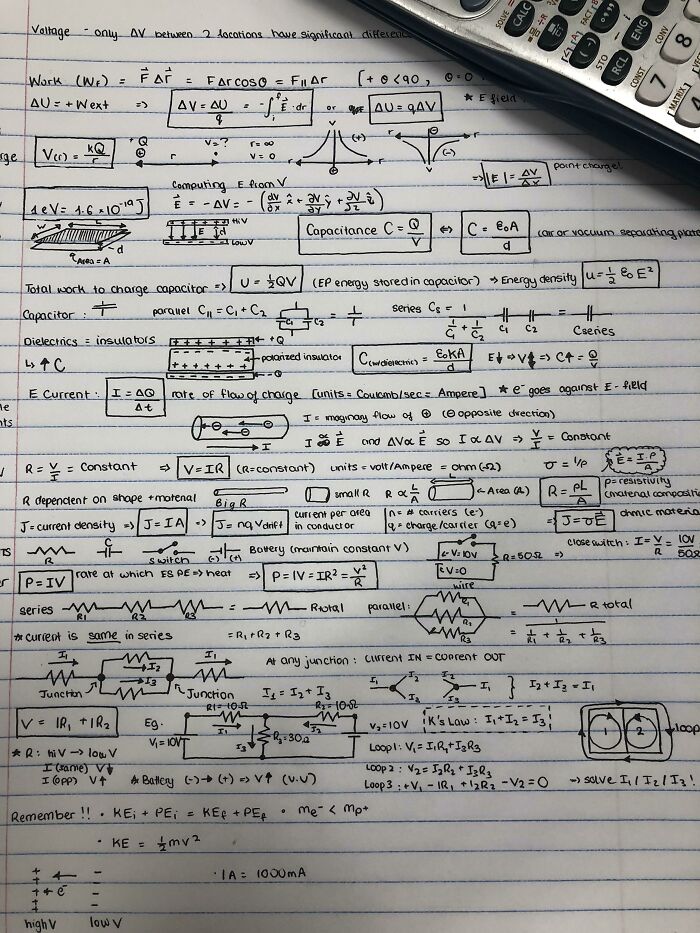 Voltage - only ΔV between 2 locations have significant
Work (Wf) = F⃗ Δr⃗ = FΔrcosθ = F∥Δr [+ θ<90, θ=0
ΔU = +Wext => ΔV = ΔU/q = -∫ᵢᶠ E⃗·dr or ΔU = qΔV * E field
V(r) = kQ/r +Q ⊕ r V=? r=∞ V=0 V r (+) ⊕ r ⊖ r V (-) => |E| = ΔV/Δx point charge!
Computing E from V
1eV = 1.6×10⁻¹⁹J E⃗ = -ΔV = -(dV/dx x̂ + ∂V/∂y ŷ + ∂V/∂z
w L d Area = A HiV E d LowV Capacitance C = Q/V <=> C = ε₀A/d (air or vacuum separating plate
Total work to charge capacitor => U = ½QV (EP energy stored in capacitor) => Energy density u = ½ ε₀ E²
Capacitor : parallel C∥ = C₁ + C₂ C₁ C₂ series Cs = 1/(1/C₁ + 1/C₂) C₁ C₂ = Cseries
Dielectrics = insulators + + + + + + +Q
↳ ↑ C polarized insulator -Q C(w/dielectric) = ε₀KA/d E↓ => V↓ => C↑ = Q/V
E Current : I = ΔQ/Δt rate of flow of charge [units = Coulomb/sec = Ampere] * e⁻ goes against E-field
I = imaginary flow of ⊕ (⊖ opposite direction)
I I ∝ E⃗ and ΔV ∝ E⃗ so I ∝ ΔV => V/I = Constant
R = V/I = Constant => V = IR (R = constant) units = volt/Ampere = ohm (Ω) σ = 1/ρ E⃗ = I·ρ/A
R dependent on shape + material Big R small R R ∝ L/A L Area (A) R = ρL/A ρ = resistivity (material compositio
J = current density => J = IA => J = nqVdrift current per area in conductor n = # carriers (e⁻) q = charge/carrier (q = e) => J = σE⃗ ohmic materia
R C switch (-) (+) Battery (maintain constant V) V=10V V=0 R=50Ω wire => close switch : I = V/R = 10V/50Ω
P = IV rate at which ES PE => heat => P = IV = IR² = V²/R
series R1 R2 R3 = Rtotal parallel: R₁ R₂ R₃ = R total
* current is same in series = R1 + R2 + R3 = 1/(1/R1 + 1/R2 + 1/R3)
I₁ I₂ I₃ I₁ Junction Junction At any junction : Current IN = current OUT
I₁ = I₂ + I₃ I₁ I₂ I₃ I₂ I₃ I₁ } I₂ + I₃ = I₁
V = IR1 + IR2 Eg. V₁ = 10V R1 = 10Ω I₁ I₃ R₃ = 30Ω R₂ = 10Ω I₂ V₂ = 10V K's Law : I₁ + I₂ = I₃ 1 2 loop
* R : hi V → low V Loop1 : V₁ = I₁R₁ + I₃R₃
I (same) V↓ Loop2 : V₂ = I₂R₂ + I₃R₃
I (opp) V↑ * Battery (-) → (+) => V↑ (V.V) Loop3 : +V₁ - IR₁ + I₂R₂ - V₂ = 0 => solve I₁ / I₂ / I₃ !
Remember !! • KEi + PEi = KEf + PEf • me⁻ < mp+
• KE = ½mv²
+ - + e⁻ - + - • 1A = 1000mA
high V low V
SOLVE = CALC ENG STO RCL CONST CONV MATRIX 7 8 4